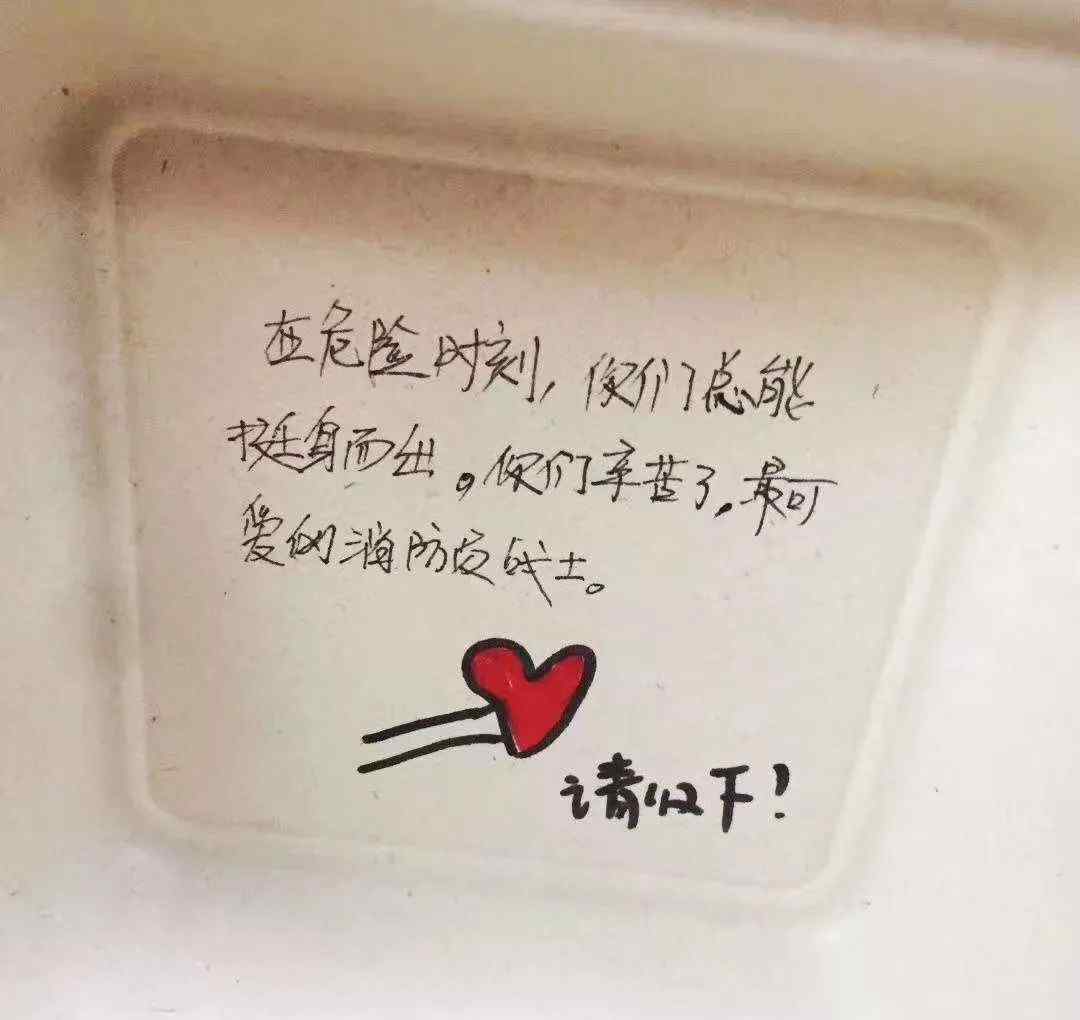 在危险时刻，你们总能
挺身而出。你们辛苦了，最可
爱的消防员战士。
请收下！